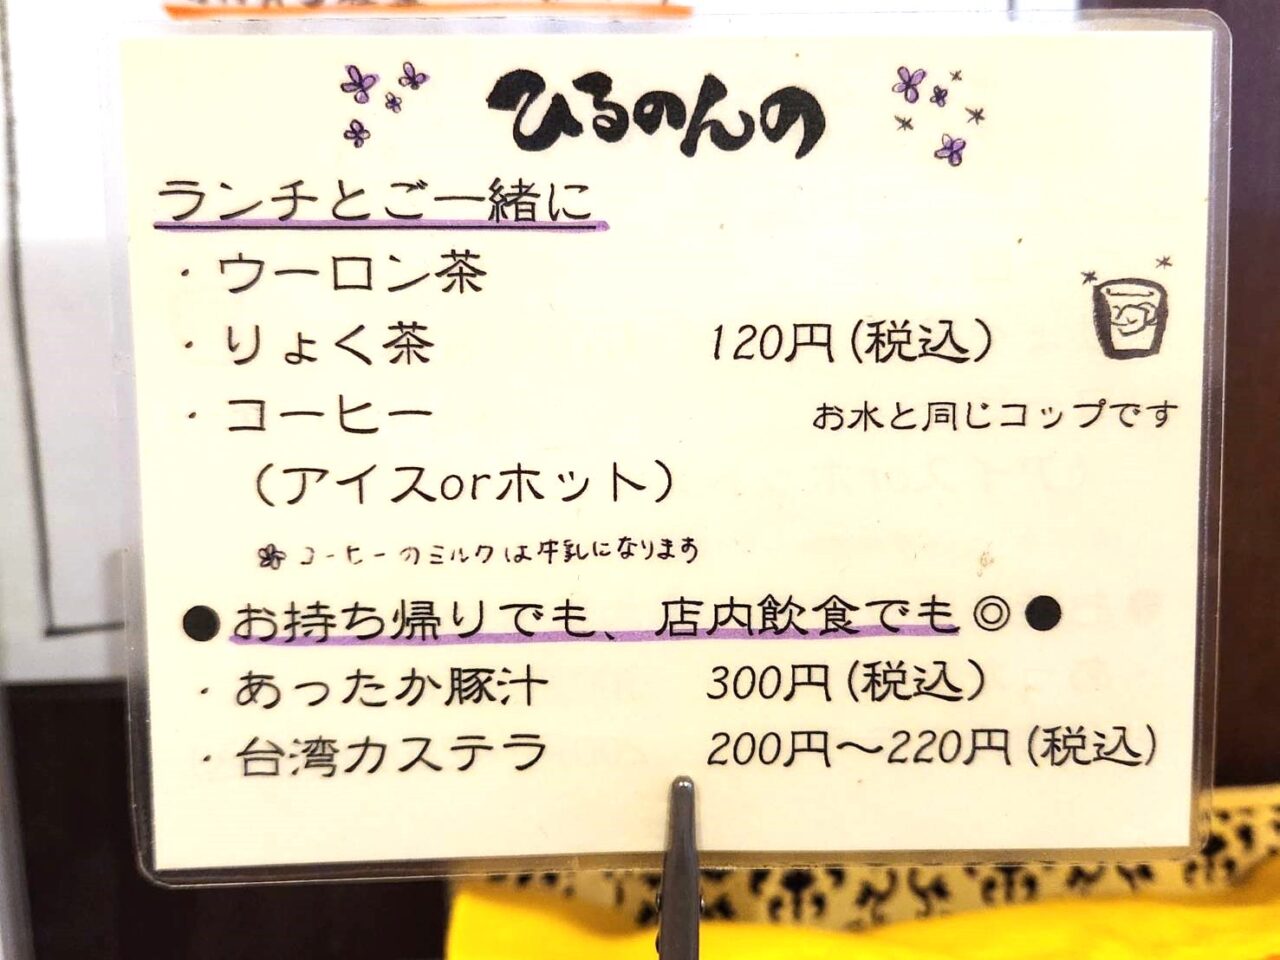 ひるのんの
ランチとご一緒に
・ウーロン茶
・りょく茶 120円(税込)
・コーヒー お水と同じコップです
(アイスorホット)
コーヒーのミルクは牛乳になります
●お持ち帰りでも、店内飲食でも◎●
・あったか豚汁 300円(税込)
・台湾カステラ 200円～220円(税込)